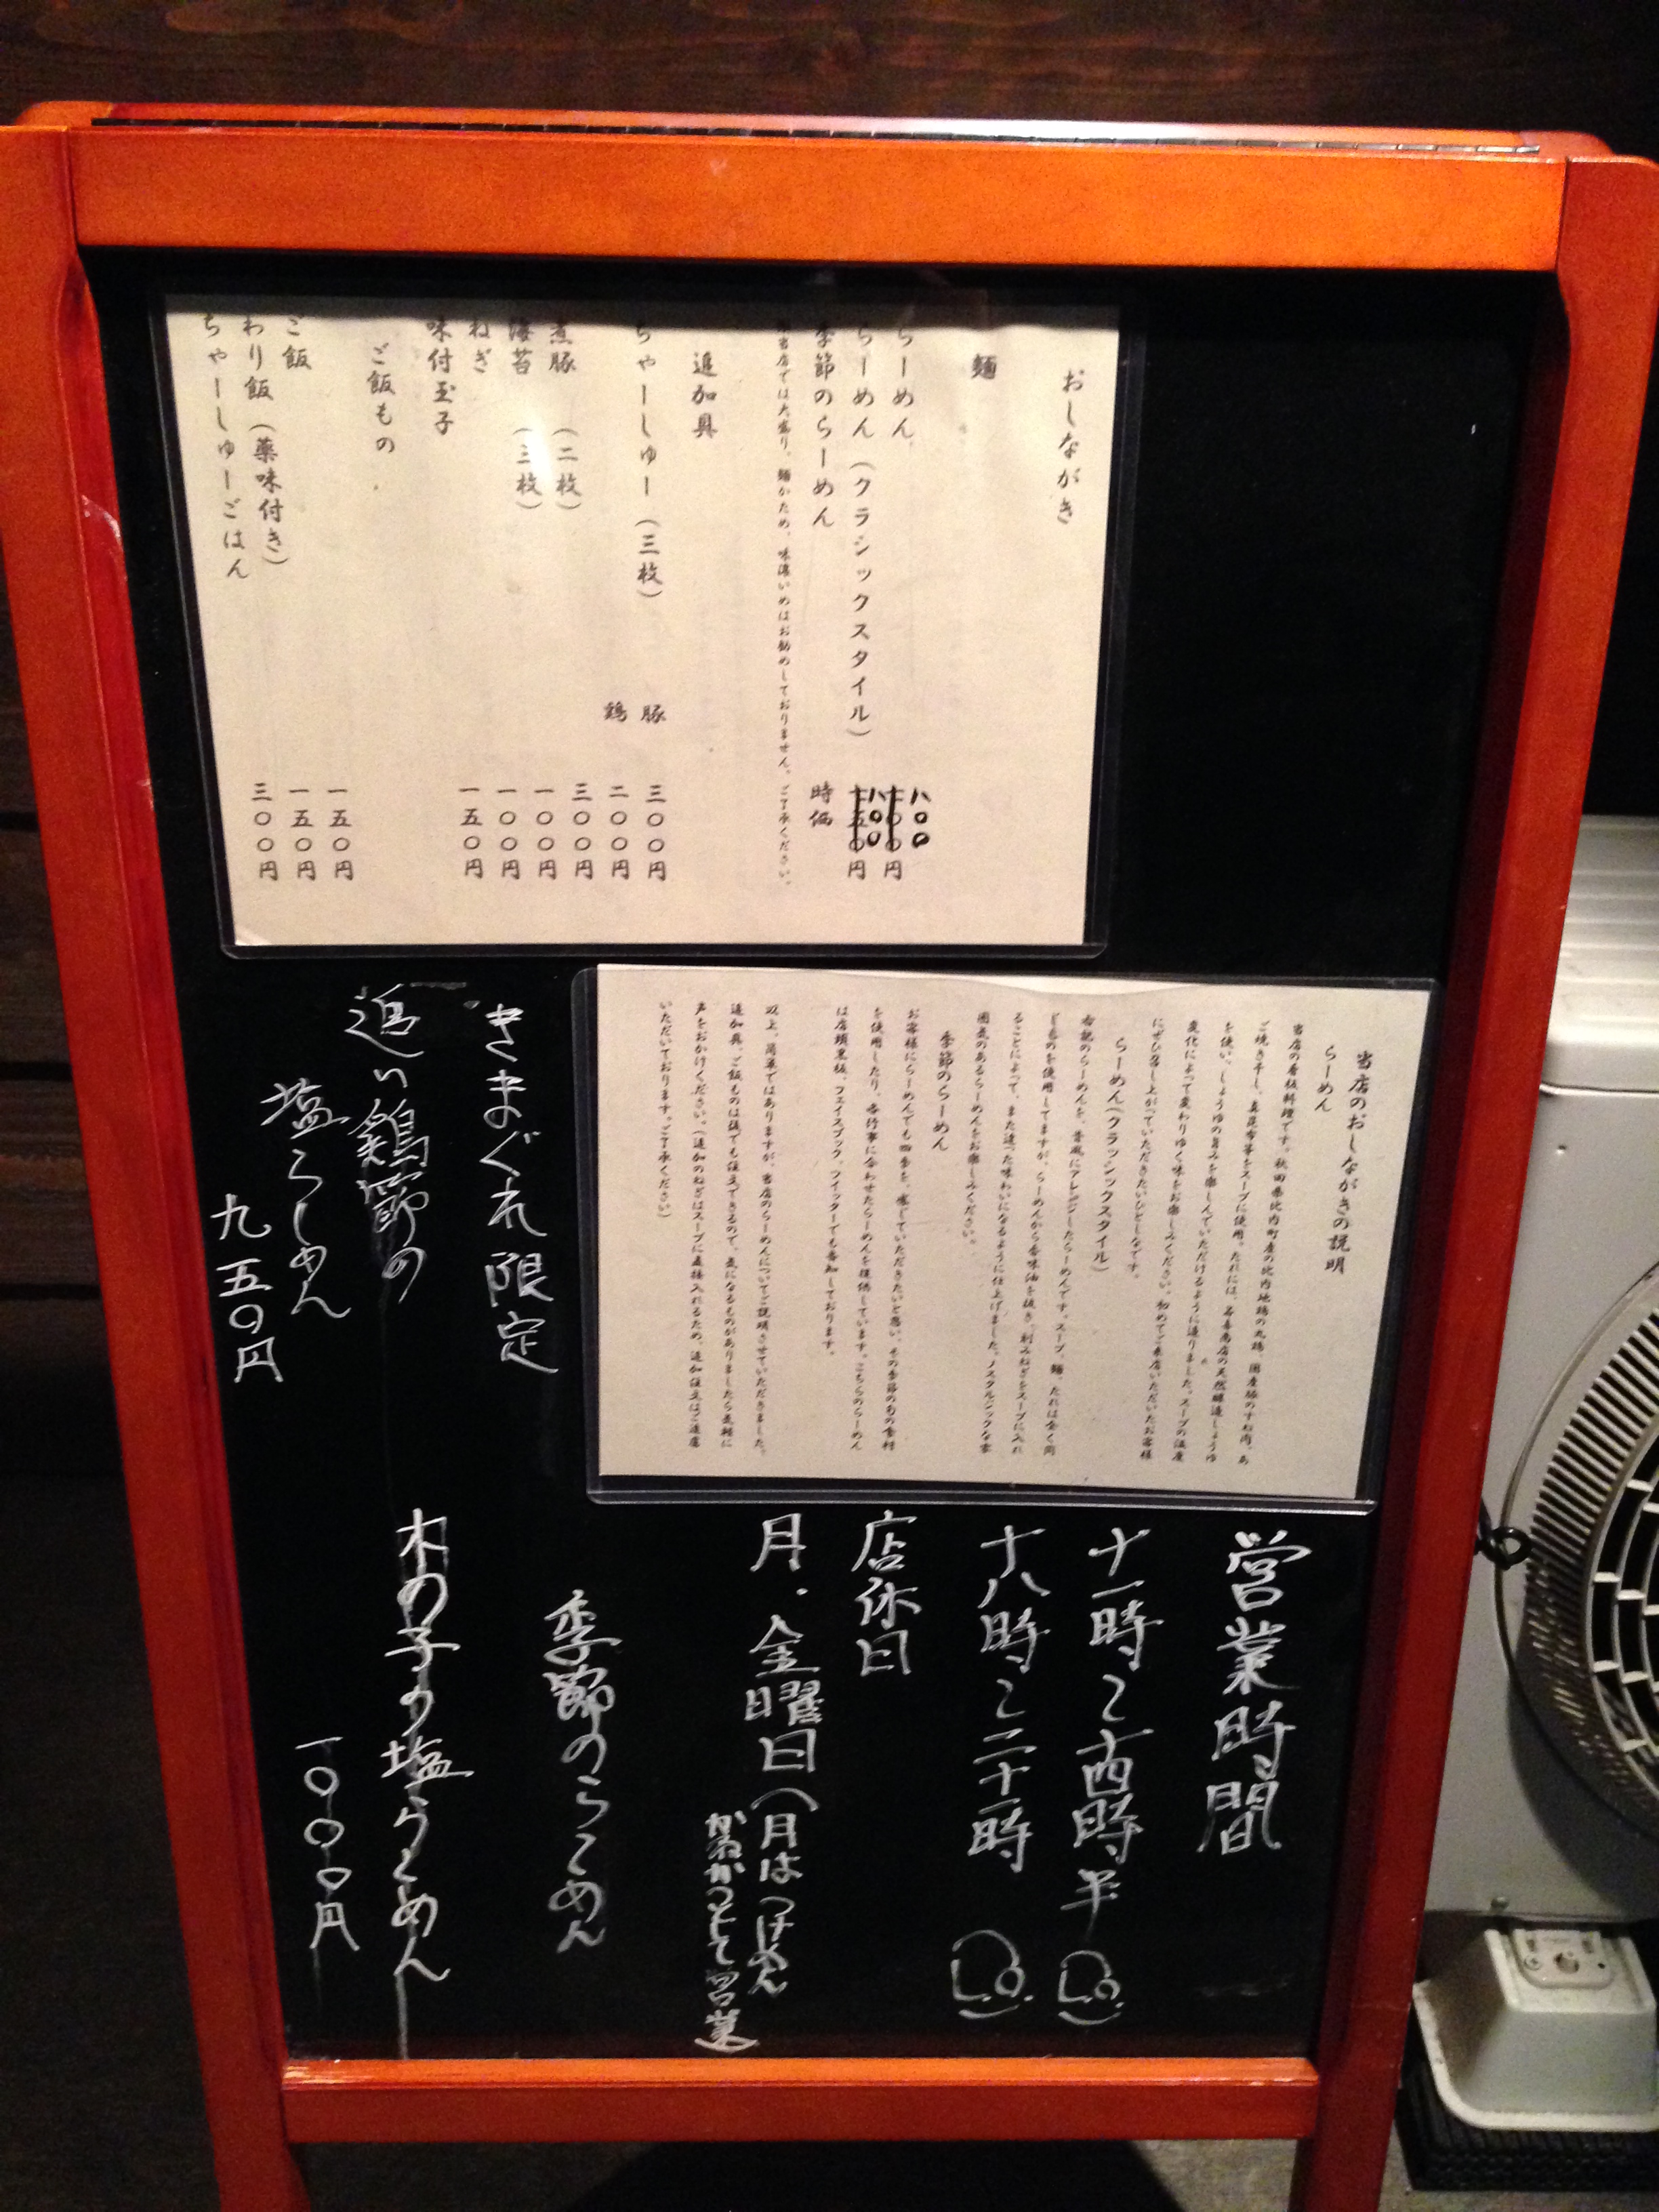 おしながき
麺
らーめん 八〇〇
らーめん（クラシックスタイル） 八〇〇 円
季節のらーめん 時価
当店では大盛り、麺かため、味濃いめはお勧めしておりません。ご了承ください。
追加具
ちゃーしゅー（三枚） 豚 三〇〇円
鶏 二〇〇円
煮豚（二枚） 三〇〇円
海苔（三枚） 一〇〇円
ねぎ 一〇〇円
味付玉子 一五〇円
ご飯もの
ご飯 一五〇円
わり飯（薬味付き） 一五〇円
ちゃーしゅーごはん 三〇〇円
当店のおしながきの説明
らーめん
当店の看板料理です。秋田県比内町産の比内地鶏の丸鶏、国産豚のすね肉、あ
ご焼き干し、真昆布等をスープに使用。たれには、 の天然醸造しょうゆ
を使い、しょうゆの旨みを楽しんでいただけるように造りました。スープの温度
変化によって変わりゆく味をお楽しみください。初めてご来店いただいたお客様
にぜひ召し上がっていただきたいひとしなです。
らーめん（クラッシックスタイル）
右記のらーめんを、昔風にアレンジしたらーめんです。スープ、麺、たれは全く同
じものを使用してますが、らーめんから香味油を抜き、刻みねぎをスープに入れ
ることによって、また違った味わいになるように仕上げました。ノスタルジックな雰
囲気のあるらーめんをお楽しみください。
季節のらーめん
お客様にらーめんでも四季を、感じていただきたいと思い、その季節の旬の食材
を使用したり、各行事に合わせたらーめんを提供しています。こちらのらーめん
は店頭黒板、フェイスブック、ツイッターでも告知しております。
以上、簡単ではありますが、当店のらーめんについてご説明させていただきました。
追加具、ご飯ものは後でも注文できるので、気になるものがありましたら気軽に
声をおかけください。（追加のねぎはスープに直接入れるため、追加注文はご遠慮
いただいております。ご了承ください）
きまぐれ限定
追い鶏節の
塩らーめん
九五〇円
営業時間
十一時〜十四時半 L.O.
十八時〜二十一時 L.O.
店休日
月・金曜日（月はつけめん
かねかつとして営業）
季節のらーめん
木の子の塩らーめん
一〇〇〇円